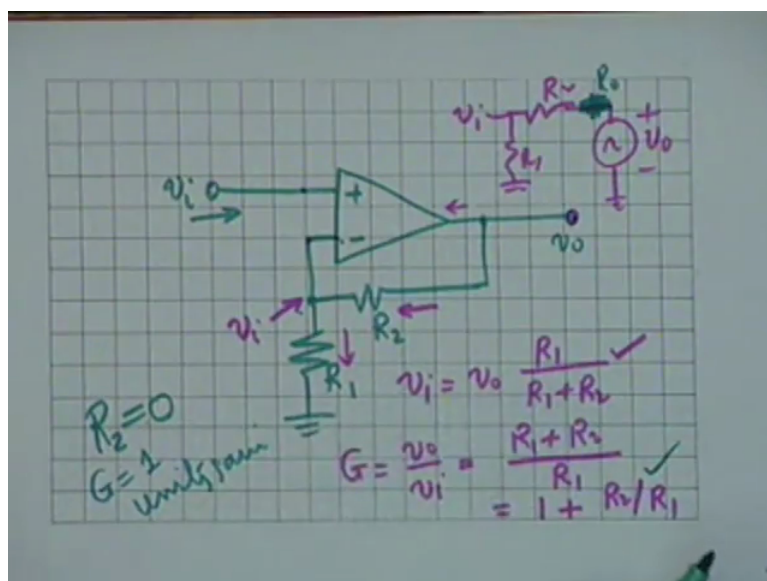 R2 R0
vi
R1
+
v0
-
vi
+
-
v0
vi
R2
R1
vi = v0 R1/(R1+R2) ✓
R2=0
G=1
unity gain
G = v0/vi = (R1+R2)/R1 ✓
= 1 + R2/R1